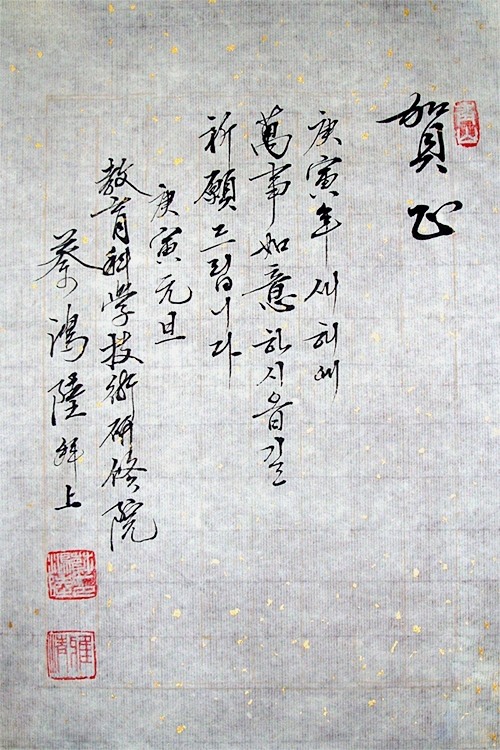 賀正
庚寅年 새해에
萬事如意 하시옵길
祈願 드립니다
庚寅元旦
敎育科學技術硏修院
蔡鴻陸 拜上